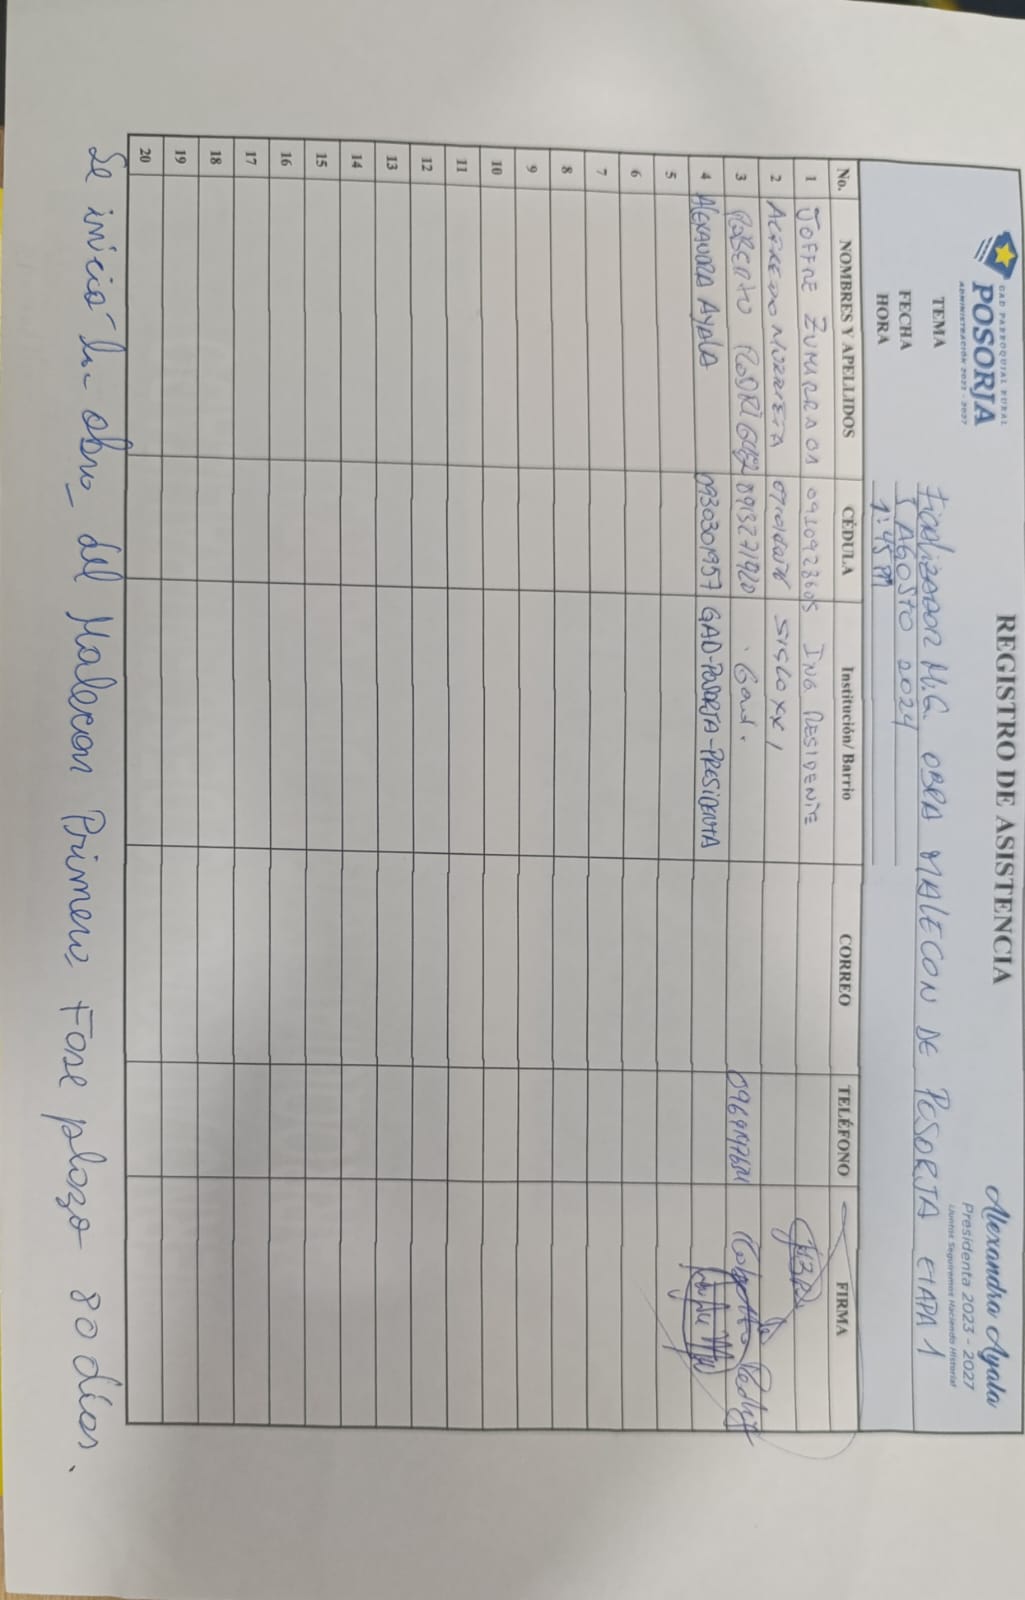 REGISTRO DE ASISTENCIA
GAD PARROQUIAL RURAL
POSORJA
ADMINISTRACIÓN 2023 - 2027
Alexandra Ayala
Presidenta 2023 - 2027
¡Juntos Seguiremos Haciendo Historia!
TEMA Ficalizador M.G. OBRA MALECON DE POSORJA ETAPA 1
FECHA 1 AGOSTO 2024
HORA 1:45 PM
No. NOMBRES Y APELLIDOS CÉDULA Institución/ Barrio CORREO TELÉFONO FIRMA
1 JOFFRE ZUMARRAGA 0910923605 ING RESIDENTE
2 ALFREDO SIGLO XX I
3 ROBERTO RODRIGUEZ 0913271920 Gad.
4 ALEXANDRA AYALA 0930301957 GAD-POSORJA-PRESIDENTA
5
6
7
8
9
10
11
12
13
14
15
16
17
18
19
20
Se inició la obra del Malecon Primera Fase plazo 80 días.